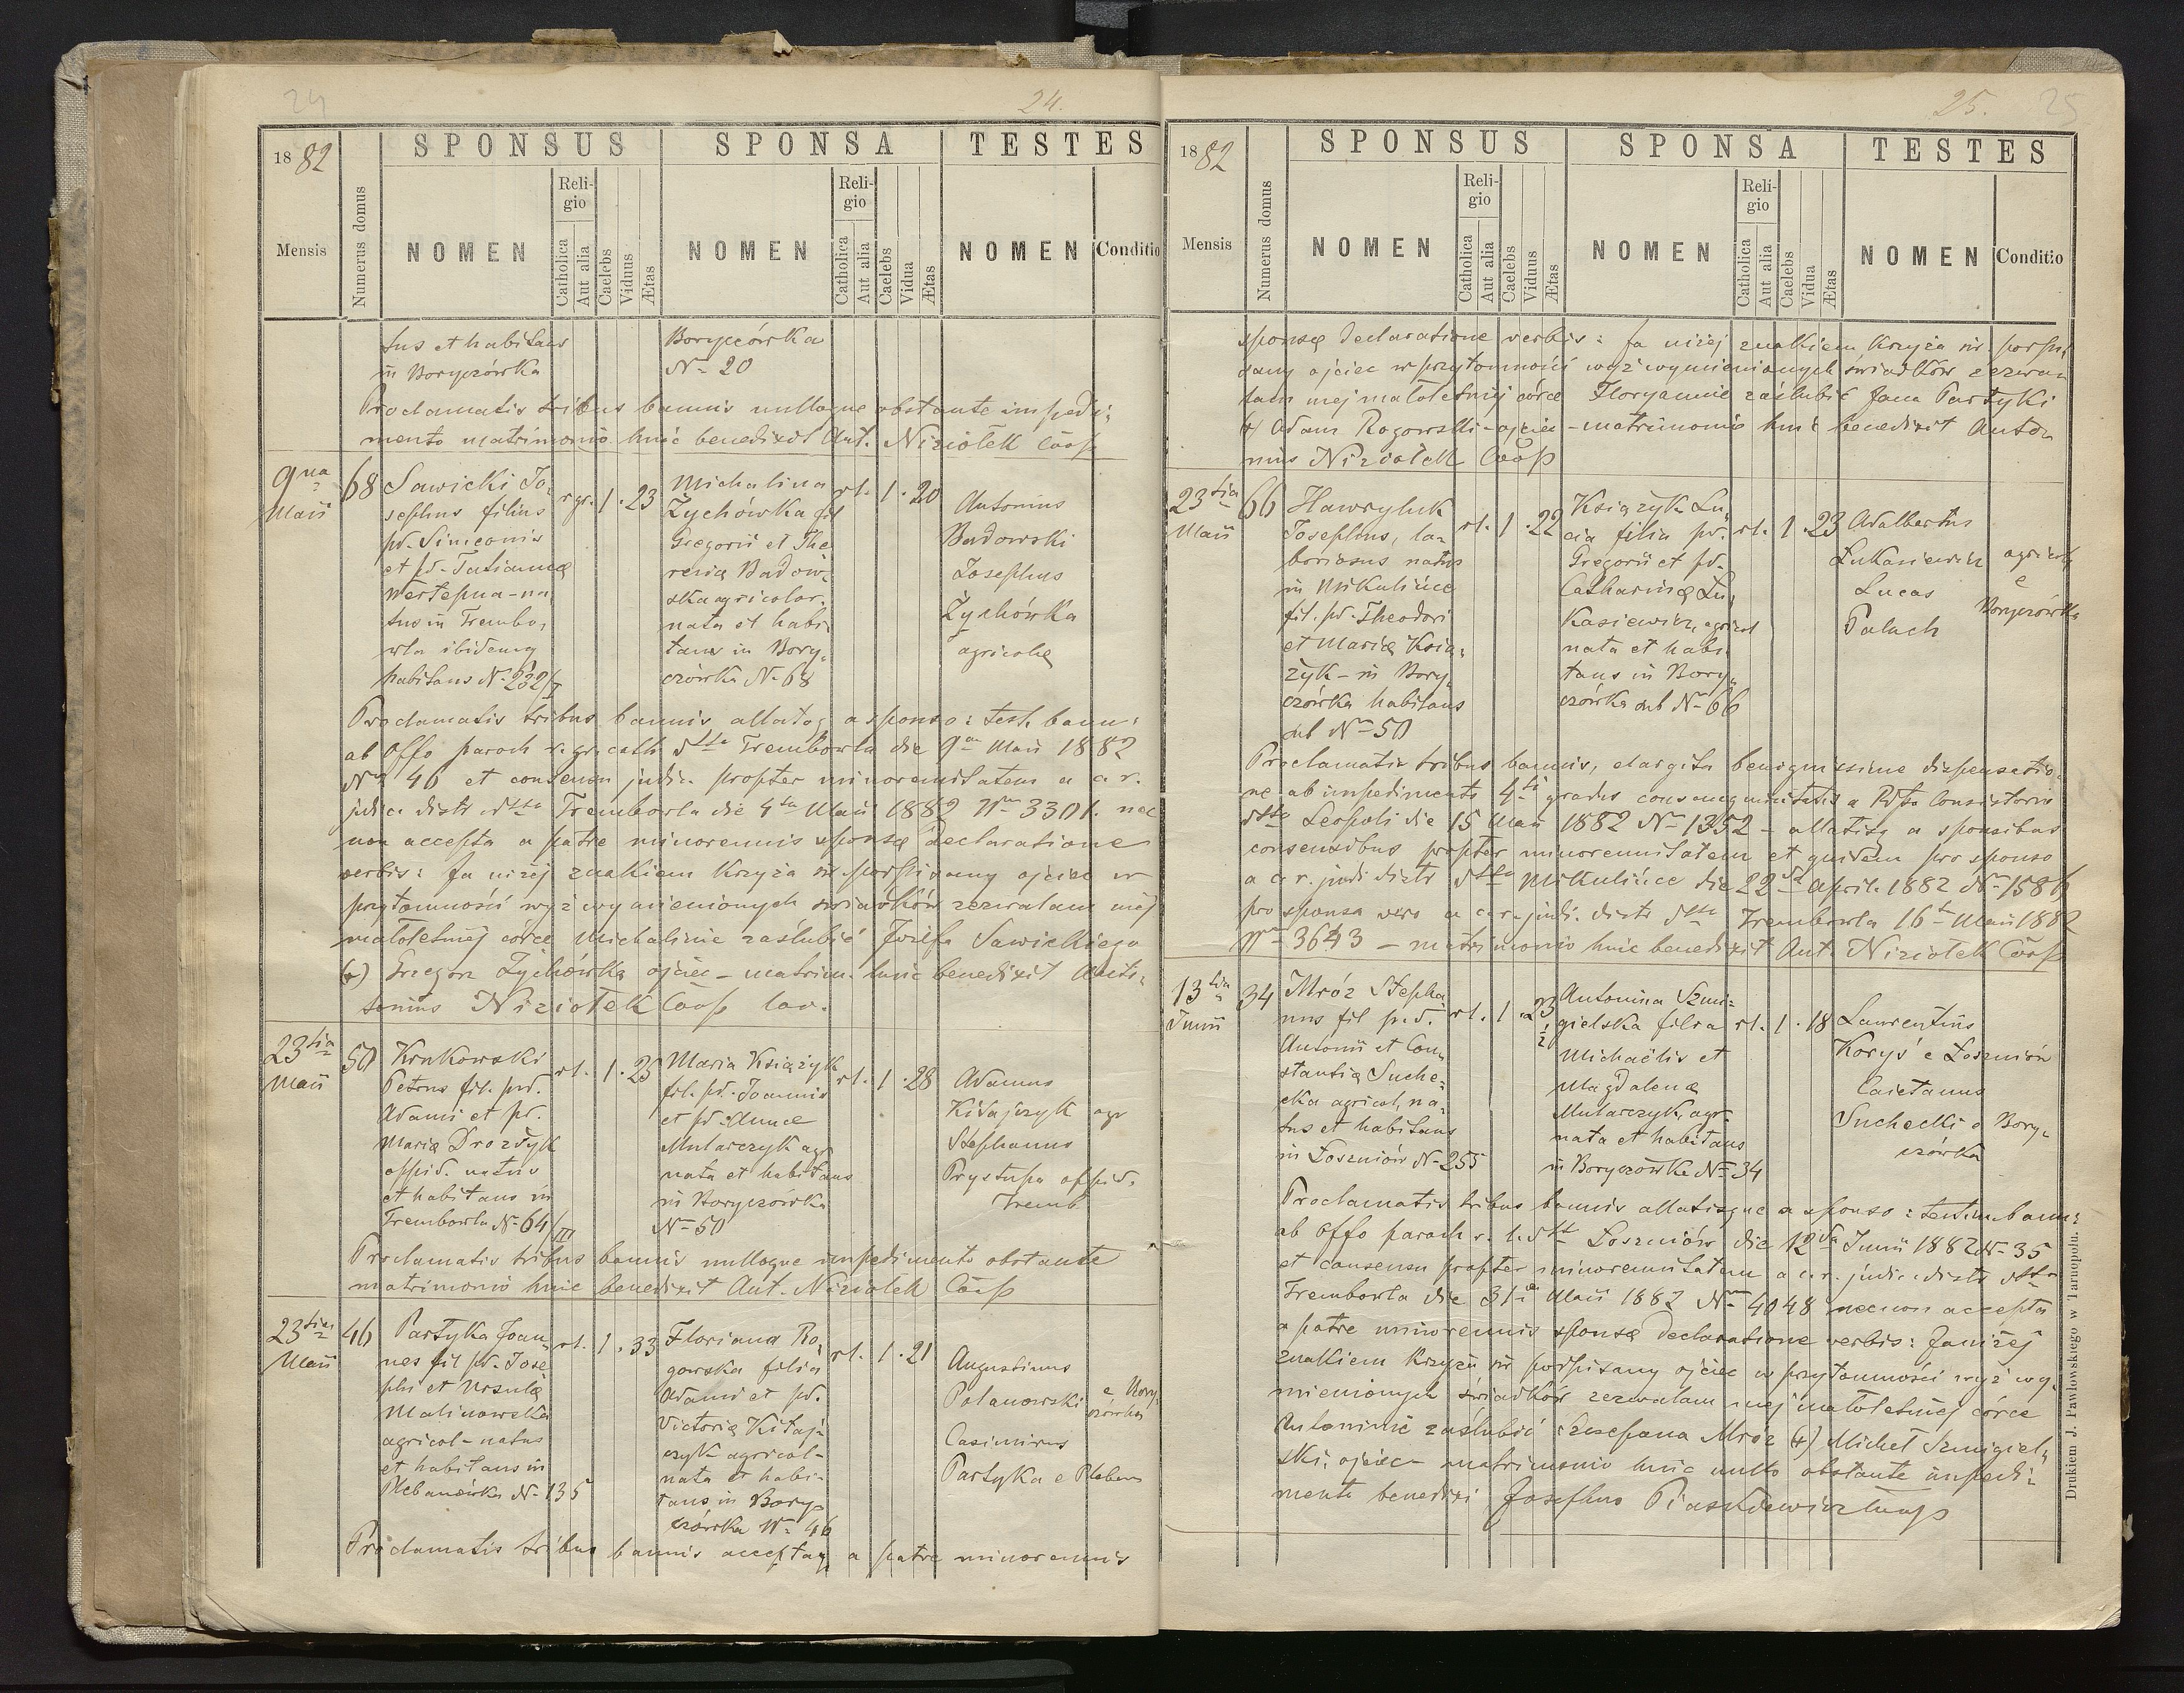 24
24.
1882
Mensis
Numerus domus
SPONSUS
NOMEN
Religio
Catholica
Aut alia
Caelebs
Viduus
Ætas
SPONSA
NOMEN
Religio
Catholica
Aut alia
Caelebs
Vidua
Ætas
TESTES
NOMEN
Conditio
tus et habitans
in Boryczówka
Boryczówka
N= 20
Proclamatis tribus bannis nulloque obstante impedi=
mento matrimonio huic benedixit Ant. Niziołek Coop
9na
Maii
68
Sawicki Jo=
sephus filius
pd. Simeonis
et pd. Tatianna
Wertepna - na=
tus in Trembo=
wla ibidemq
habitans N= 232/I
r gr. 1 . 23
Michalina
Żychówka fil
Gregorii et The
resiæ Badow=
ska agricolar.
nata et habi=
tans in Bory=
czówka N= 68
rl. 1 . 20
Antonius
Badowski
Josephus
Żychówka
agricolæ
Proclamatis tribus bannis allatoq a sponso: test. bann:
ab Offo paroch r. gr. cath dtto Trembowla die 9na Maii 1882
Nr 46 et consensu judic. propter minorennitatem a c. r.
judic. distr dtto Trembowla die 4ta Maii 1882 Nro 3301. nec
non accepta a patre minorennis sponsæ declaratione
verbis: Ja niżej znakiem krzyża św. podpisany ojciec w
przytomności wyż wymienionych świadków zezwalam mej
małoletniej córce Michalinie zaślubić Józefa Sawickiego
(+) Grzegorz Żychówka ojciec - matrim. huic benedixit Anto=
nius Niziołek Coop loc.
23tia
Maii
50
Krukowski
Petrus fil. pd.
Adami et pd.
Maria Drozdyk
oppid. natus
et habitans in
Trembowla N= 64/III
rl. 1 . 25
Maria Książyk
fil. pd. Joannis
et pd. Annæ
Mularczyk agr
nata et habitans
in Boryczówka
N= 50
rl. 1 . 28
Adamus
Kitajczyk agr
Stephanus
Prystupa oppid.
Tremb.
Proclamatis tribus bannis nulloque impedimento obstante
matrimonio huic benedixit Ant. Niziołek Coop
23tia
Maii
46
Partyka Joan=
nes fil pd. Jose
phi et Ursulæ
Malinowska
agricol - natus
et habitans in
Plebanówka N= 135
rl. 1 . 33
Floriana Ro=
gowska filia
Adami et pd.
Victoriæ Kitaj=
czyk agricol -
nata et habi=
tans in Bory=
czówka N= 46
rl. 1 . 21
Augustinus
Polanowski e Bory
czówka
Casimirus
Partyka e Pleban
Proclamatis tribus bannis acceptaq a patre minorennis
25.
25
1882
Mensis
Numerus domus
SPONSUS
NOMEN
Religio
Catholica
Aut alia
Caelebs
Viduus
Ætas
SPONSA
NOMEN
Religio
Catholica
Aut alia
Caelebs
Vidua
Ætas
TESTES
NOMEN
Conditio
sponsæ declaratione verbis: Ja niżej znakiem krzyża św podpi=
sany ojciec w przytomności wyż wymienionych świadków zezwa=
lam mej małoletniej córce Floryannie zaślubić Jana Partyki
(+) Adam Rogowski - ojciec - matrimonio huic benedixit Anto=
nius Niziołek Coop
23tia
Maii
66
Hawryluk
Josephus, la=
boriosus natus
in Mikulińce
fil. pd. Theodori
et Mariæ Ksią=
żyk - in Bory=
czówka habitans
sub Nro 50
rl. 1 . 22
Książyk Lu=
cia filia pd.
Gregorii et pd.
Catharinæ Łu=
kasiewicz, agricol
nata et habi=
tans in Bory=
czówka sub N= 66
rl. 1 . 23
Adalbertus
Łukasiewicz
Lucas
Paluch
agricol
e
Boryczówka
Proclamatis tribus bannis, elargita benignissime dispensatio=
ne ab impedimento 4ti gradus consanguinitatis a Rdto Consistorio
dtto Leopoli die 15 Maii 1882 N= 1352 - allatisq a sponsibus
consensibus propter minorennitatem et quidem pro sponso
a c. r. judi distr dtto Mikulińce die 22da April. 1882 N= 1586
pro sponsa vero a c. r. judi. distr dtto Trembowla 16ta Maii 1882
Nro 3643 - matrimonio huic benedixit Ant. Niziołek Coop
13tia
Junii
34
Mróz Stepha=
nus fil pd.
Antonii et Con=
stantiæ Suche=
cka agricol, na=
tus et habitans
in Łoszniów N= 255
rl. 1 . 23 1/2
Antonina Szmi=
gielska filia
Michaëlis et
Magdalenæ
Mularczyk, agr.
nata et habitans
in Boryczówka N= 34
rl. 1 . 18
Laurentius
Koryś e Łoszniów
Caietanus
Suchecki e Bory=
czówka
Proclamatis tribus bannis allatisque a sponso: testim. bann:
ab Offo paroch r. l. dtto Łoszniów die 12da Junii 1882 N= 35
et consensu propter minorennitatem a c. r. judic. distr dtto
Trembowla die 31a Maii 1882 Nro 4048 necnon accepta
a patre minorennis sponsæ declaratione verbis: Ja niżej
znakiem krzyża św podpisany ojciec w przytomności wyż wy=
mienionych świadków zezwalam mej małoletniej córce
Antoninie zaślubić Szczepana Mróz (+) Michał Szmigiel=
ski, ojciec - matrimonio huic nullo obstante impedi=
mento benedixi Josephus Piaskiewicz
Drukiem J. Pawłowskiego w Tarnopolu.